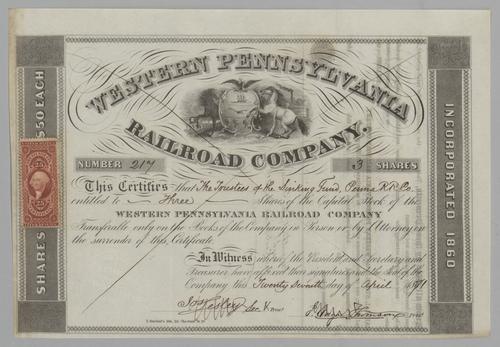 WESTERN PENNSYLVANIA
RAILROAD COMPANY.
SHARES $50 EACH
INCORPORATED 1860
NUMBER 217
3 SHARES
This Certifies that The Trustees of the Sinking Fund, Penna R.R. Co.
entitled to Three Shares of the Capital Stock of the
WESTERN PENNSYLVANIA RAILROAD COMPANY
Transferable only on the Books of the Company in Person or by Attorney on
the surrender of this Certificate.
In Witness whereof the President and Secretary and
Treasurer have affixed their signatures and the Seal of the
Company this Twenty Seventh day of April 1871
Jos Lesley Sec